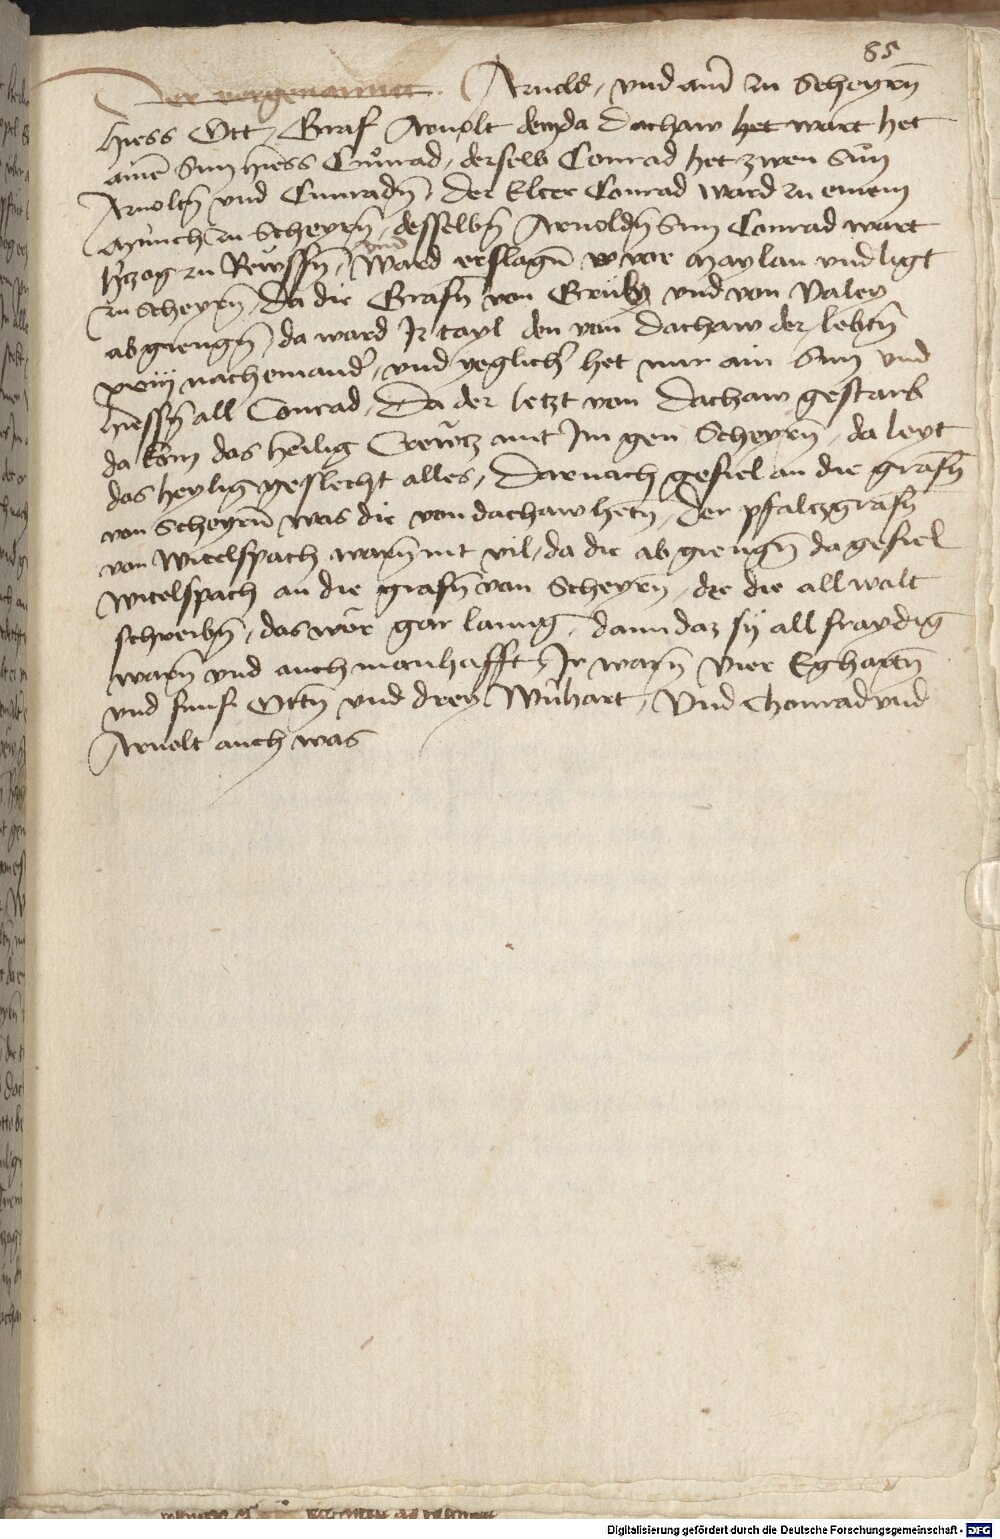 85
Der vorgenannt. Arnold, vnd ainer zu Scheyrn̄
hiess Ott, Graf Arnolt dem da Dachaw het wart het
ainē Sun hiess Cůnrad, derselb Conrad het zwen Sůn
Arnoltn̄ vnd Cunradn̄, der Elter Conrad ward zu einem
Münch zu Scheyrn̄, desselbn̄ Arnoldn̄ Sun Conrad wart
vnd
hʼtzog zu Rewssn̄, Ward erslagn̄ w vor Maylan vnd ligt
zu Scheyrn̄, Da die Grafn̄ von Grüb vnd von Valey
ab giengn̄, da ward Ir tayl den von Dachaw der lebtn̄
xviij nacheinandʼ, vnd yeglichʼ het nur ain Sun vnd
hiessn̄ all Conrad, Da der letzt von Dachaw gestarb
da kom das heilig Crewtz mit Im gen Scheyrn̄, da leyt
das heylig geslecht alles, Darnach gefiel an die grafn̄
von Scheyrn̄ was die von dachaw hetn̄, Der pfaltzgrafn̄
von Witelspach warn̄ nit vil, da die ab giengn̄ da gefiel
Witelspach an die grafn̄ von Scheyrn, der die all wolt
schreibn̄, das wer gar lanng, dann daz sy all fraydig
warn̄ vnd auch manhafft, Ir warn̄ vier Eghartn̄
vnd funf Ottn̄ vnd drey Wʼnhart, Vnd Chonrad vnd
Arnolt auch was
Digitalisierung gefördert durch die Deutsche Forschungsgemeinschaft - DFG